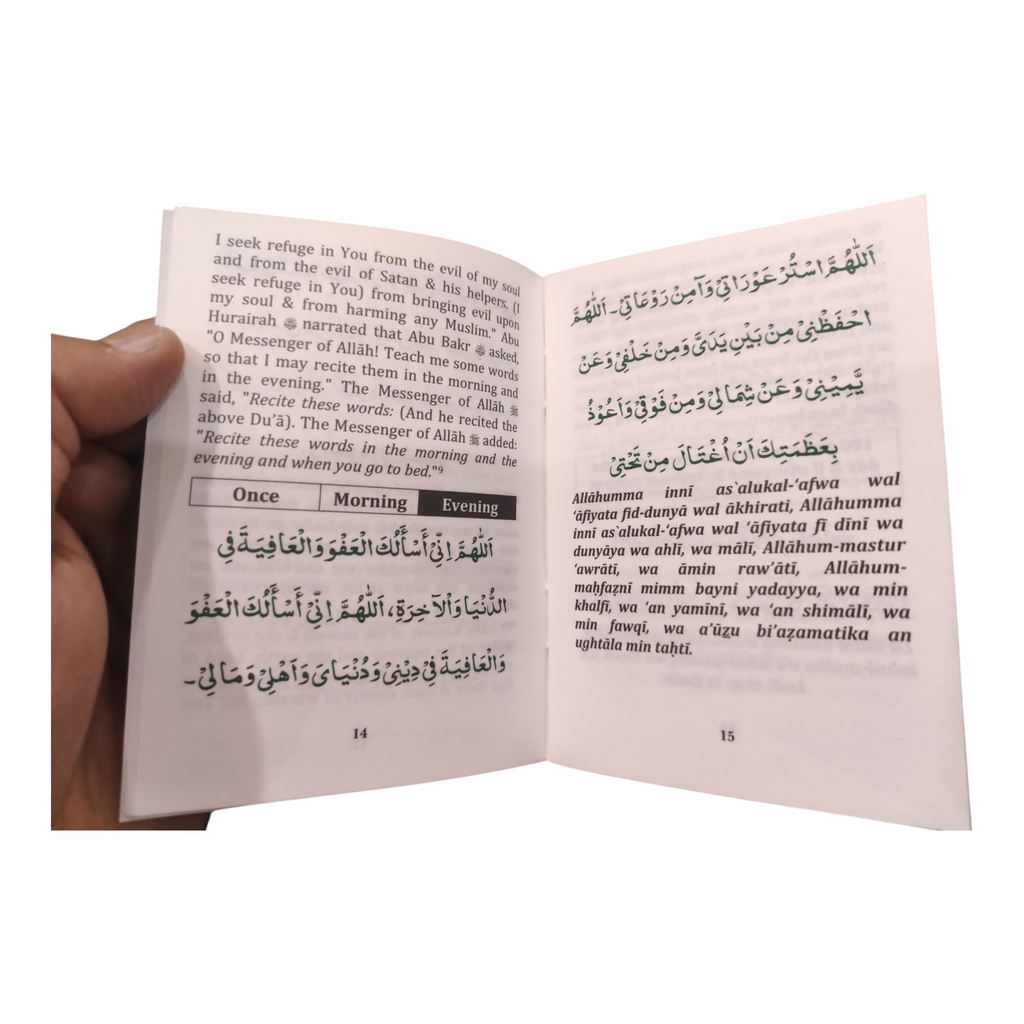 I seek refuge in You from the evil of my soul
and from the evil of Satan & his helpers. (I
seek refuge in You) from bringing evil upon
my soul & from harming any Muslim." Abu
Hurairah ﷺ narrated that Abu Bakr ﷺ asked,
"O Messenger of Allāh! Teach me some words
so that I may recite them in the morning and
in the evening." The Messenger of Allāh ﷺ
said, "Recite these words: (And he recited the
above Du'ā). The Messenger of Allāh ﷺ added:
"Recite these words in the morning and the
evening and when you go to bed."⁹
Once Morning Evening
اَللّٰهُمَّ اِنِّيْ أَسْأَلُكَ الْعَفْوَ وَالْعَافِيَةَ فِي
الدُّنْيَا وَالْآخِرَةِ، اَللّٰهُمَّ اِنِّيْ أَسْأَلُكَ الْعَفْوَ
وَالْعَافِيَةَ فِيْ دِيْنِيْ وَدُنْيَايَ وَاَهْلِيْ وَمَالِيْ۔
14
اَللّٰهُمَّ اسْتُرْ عَوْرَاتِيْ وَآمِنْ رَوْعَاتِيْ۔ اَللّٰهُمَّ
احْفَظْنِيْ مِنْ بَيْنِ يَدَيَّ وَمِنْ خَلْفِيْ وَعَنْ
يَّمِيْنِيْ وَعَنْ شِمَالِيْ وَمِنْ فَوْقِيْ وَاَعُوْذُ
بِعَظَمَتِكَ اَنْ اُغْتَالَ مِنْ تَحْتِيْ
Allāhumma innī as`alukal-'afwa wal
'āfiyata fid-dunyā wal ākhirati, Allāhumma
innī as`alukal-'afwa wal 'āfiyata fī dīnī wa
dunyāya wa ahlī, wa mālī, Allāhum-mastur
'awrātī, wa āmin raw'ātī, Allāhum-
maḥfaẓnī mimm bayni yadayya, wa min
khalfī, wa 'an yamīnī, wa 'an shimālī, wa
min fawqī, wa a'ūẕu bi'aẓamatika an
ughtāla min taḥtī.
15